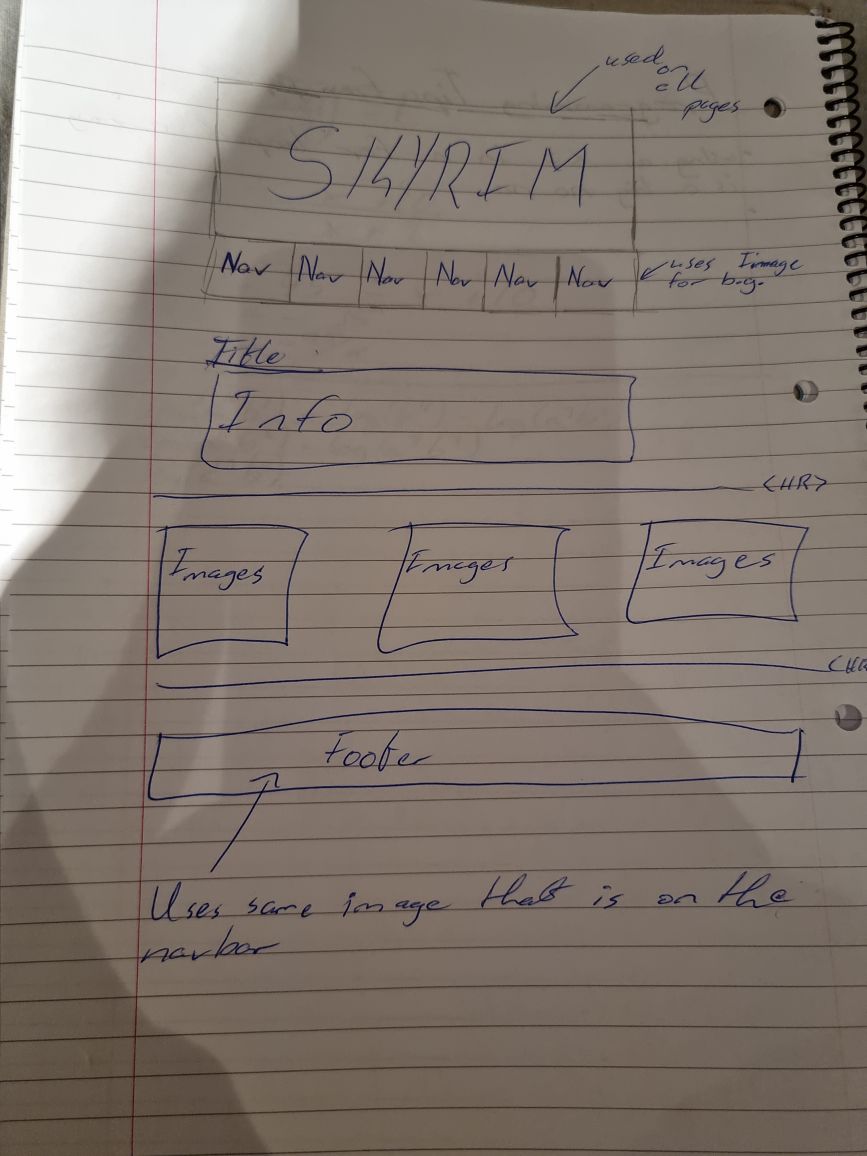 used
on
all
pages
SKYRIM
Nav Nav Nav Nav Nav Nav
uses Image
for b.g.
Title
Info
<HR>
Images Images Images
<HR
Footer
Uses same image that is on the
navbar